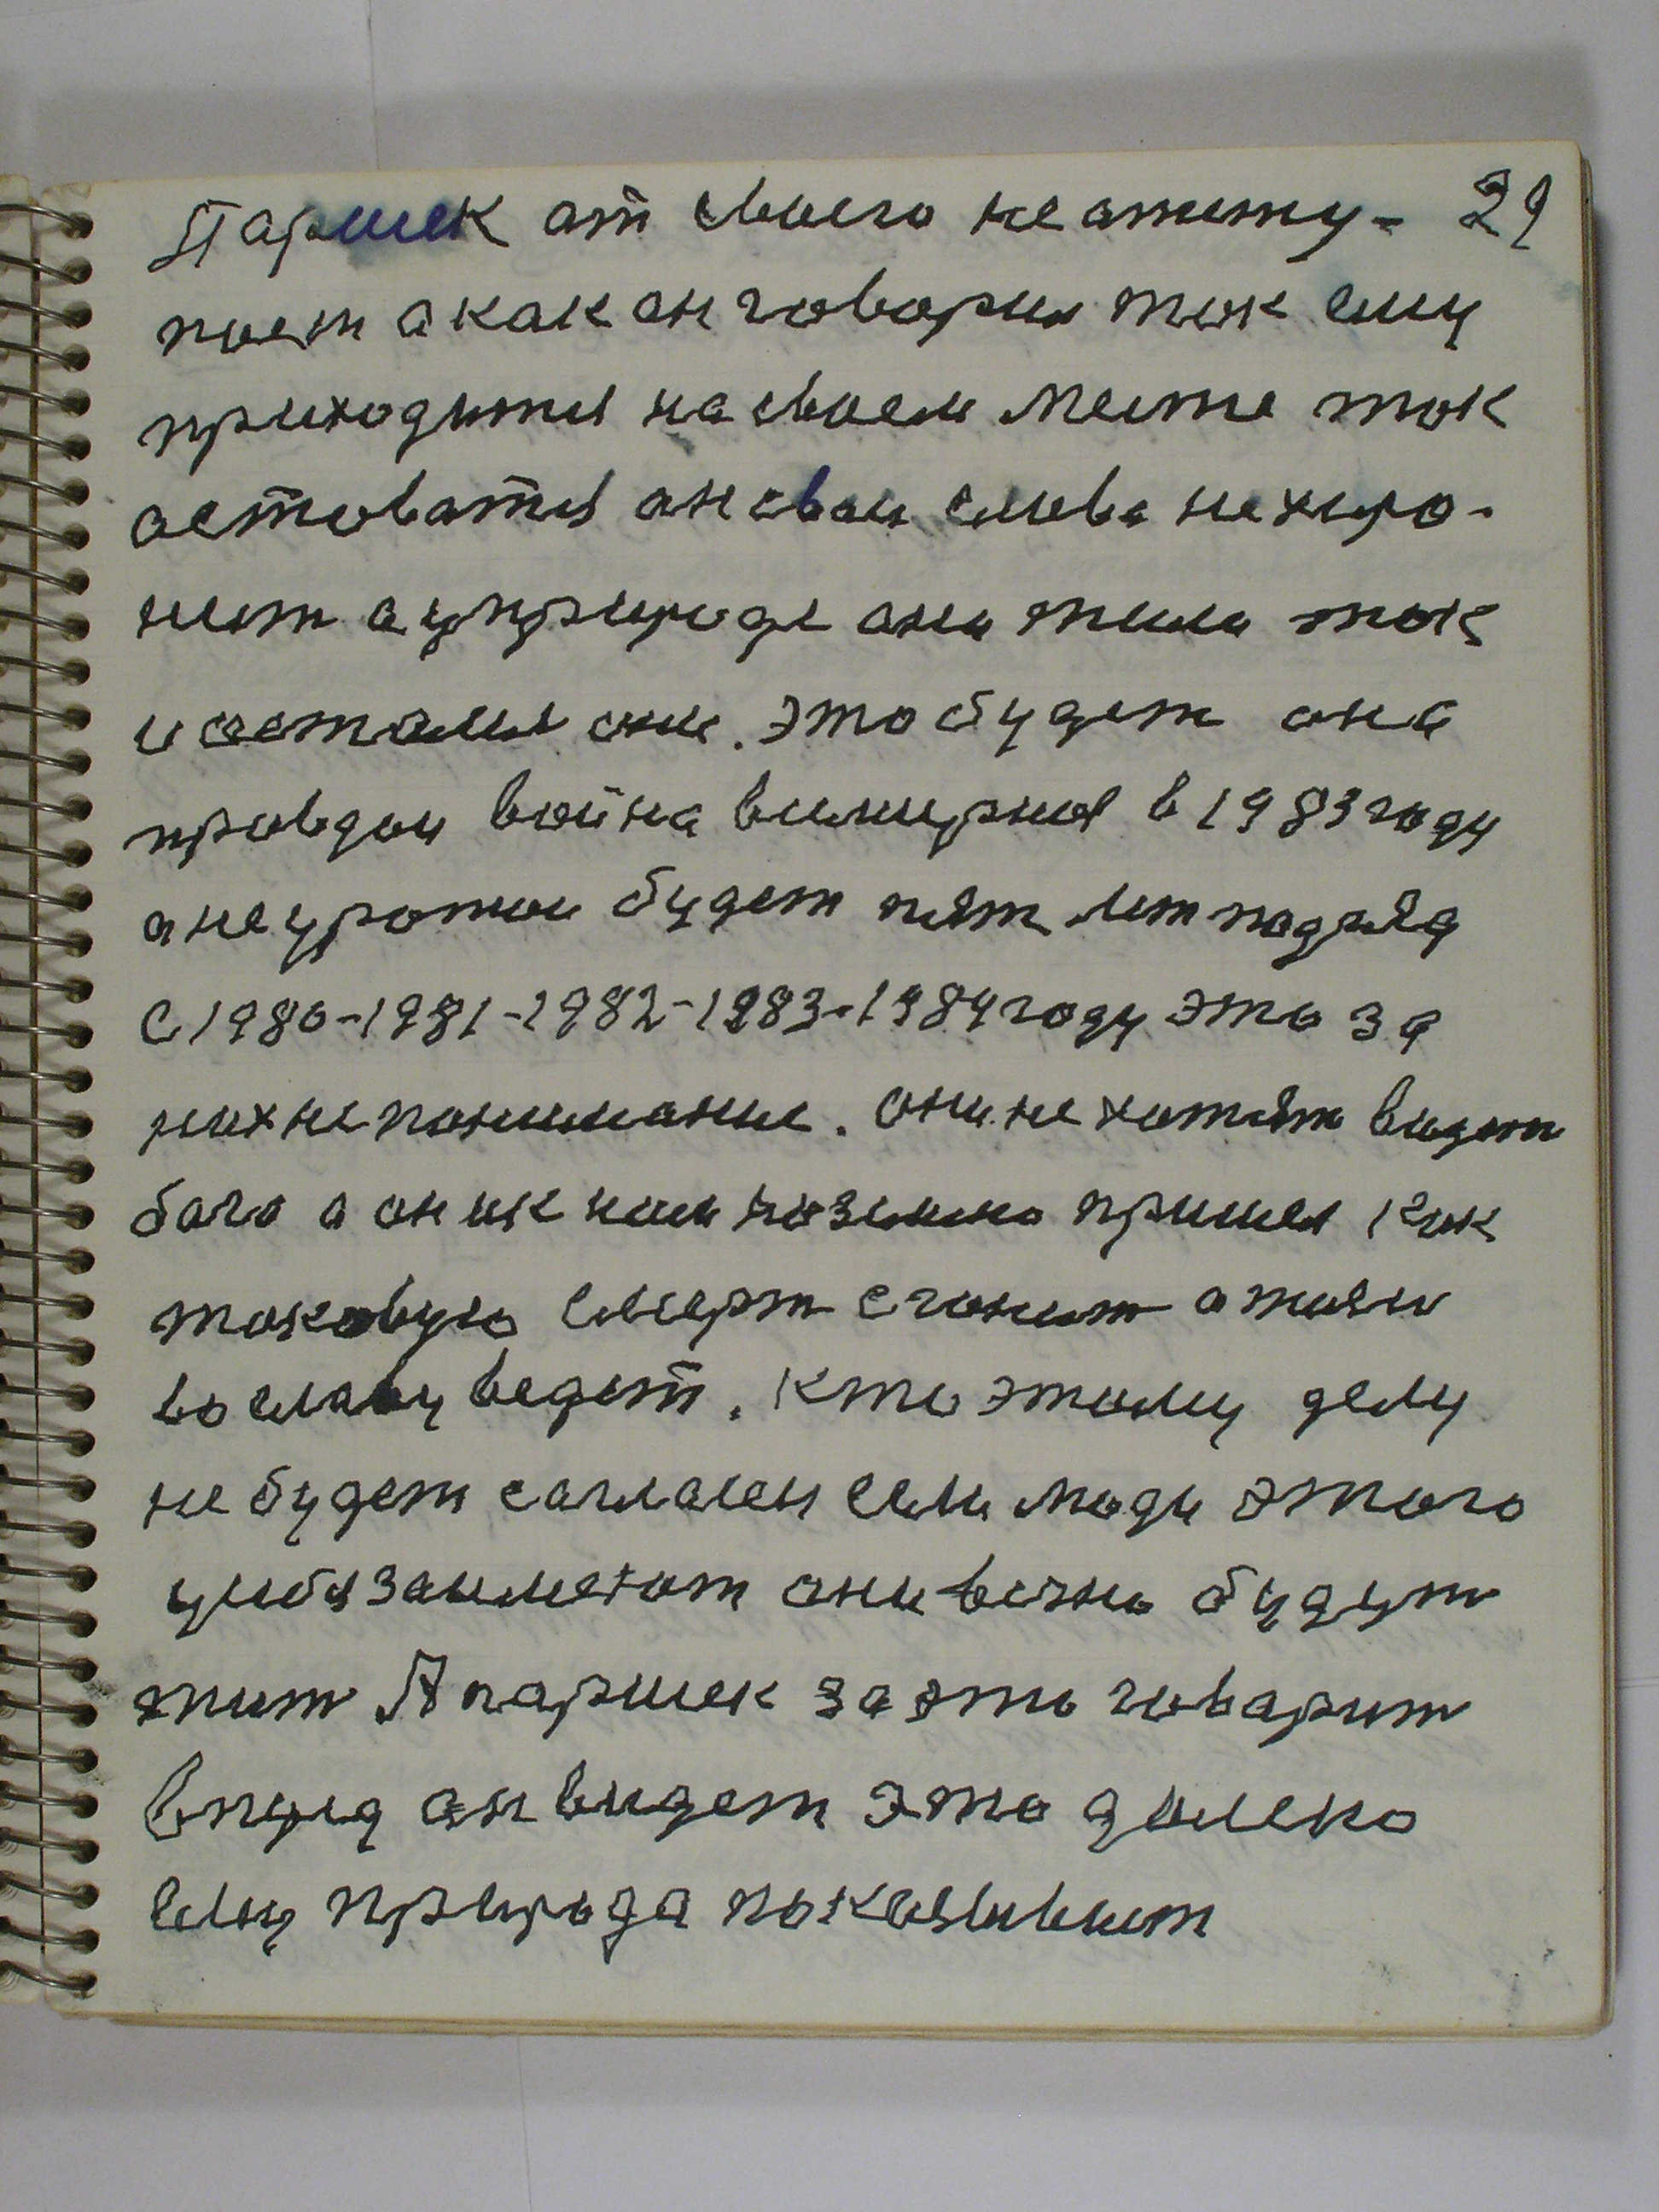 Паршек ат своего не атсту- 29
поет а как он говорил так ему
приходится на своем месте так
астоватся ан свои слова не хиро-
нит а у природе ани жили так
и астались они. Это будет она
правдои война всимирная в 1983 году
а не урожаи будет пят лет подряд
С 1980-1981-1982-1983-1984 году это за
них не понимание. они не хотят видет
бога а он ик ним на землю пришел как
таковую смерт сгонит а жизн
во славу ведет. Кто этому делу
не будет сагласен если люди этого
у себя займеют они вечно будут
жит А паршек за это говарит
впиред ан видет это далеко
ему природа показывает